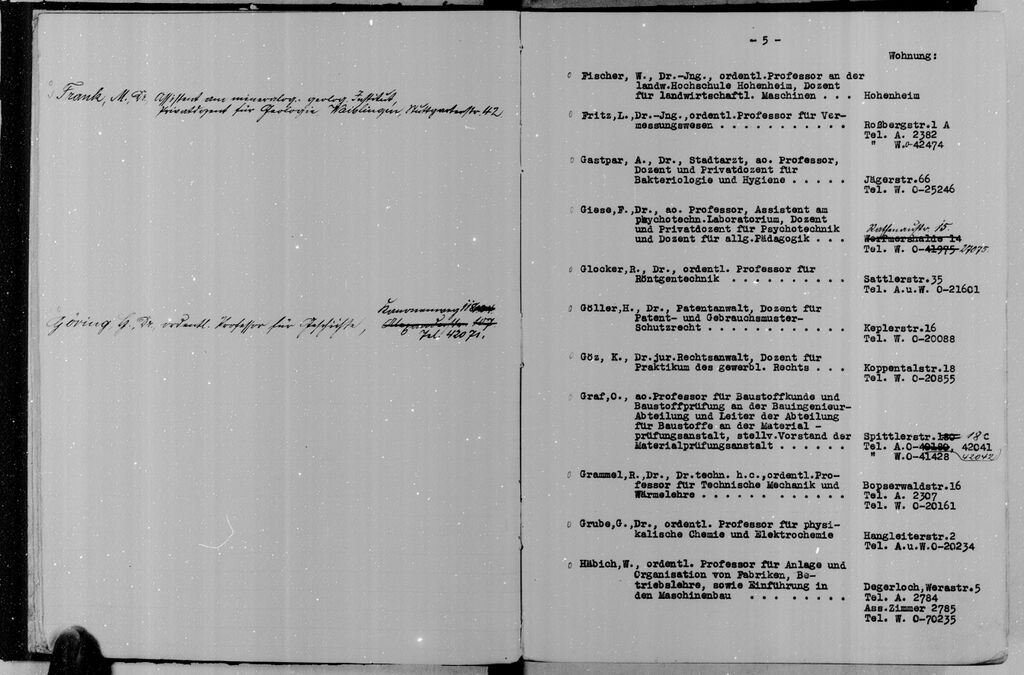 Frank, M. Dr. Assistent am mineralog. geolog. Institut,
Privatdozent für Geologie Waiblingen, Stuttgarterstr. 42
Göring H., Dr. ordentl. Professor für Geschichte,
Kanonenweg
Tel. 42071.
- 5 -
Wohnung:
Fischer, W., Dr.-Jng., ordentl.Professor an der
landw.Hochschule Hohenheim, Dozent
für landwirtschaftl. Maschinen . . . Hohenheim
Fritz,L.,Dr.-Jng.,ordentl.Professor für Ver-
messungswesen . . . . . . . . . . . Roßbergstr.1 A
Tel. A. 2382
" W.0-42474
Gastpar, A., Dr., Stadtarzt, ao. Professor,
Dozent und Privatdozent für
Bakteriologie und Hygiene . . . . . Jägerstr.66
Tel. W. 0-25246
Giese,F.,Dr., ao. Professor, Assistent am
psychotechn.Laboratorium, Dozent
und Privatdozent für Psychotechnik Rathenaustr. 15.
und Dozent für allg.Pädagogik . . . Werfmershalde 14
Tel. W. 0-41975 27075.
Glocker,R., Dr., ordentl. Professor für
Röntgentechnik . . . . . . . . . . Sattlerstr.35
Tel. A.u.W. 0-21601
Göller,H., Dr., Patentanwalt, Dozent für
Patent- und Gebrauchsmuster-
Schutzrecht . . . . . . . . . . . . Keplerstr.16
Tel. W. 0-20088
Göz, K., Dr.jur.Rechtsanwalt, Dozent für
Praktikum des gewerbl. Rechts . . . Koppentalstr.18
Tel. W. 0-20855
Graf,O., ao.Professor für Baustoffkunde und
Baustoffprüfung an der Bauingenieur-
Abteilung und Leiter der Abteilung
für Baustoffe an der Material -
prüfungsanstalt, stellv.Vorstand der Spittlerstr. 18 C
Materialprüfungsanstalt . . . . . . Tel. A.0- 42041
" W.0-41428 (42042)
Grammel,R.,Dr., Dr.techn. h.c.,ordentl.Pro-
fessor für Technische Mechanik und Bopserwaldstr.16
Wärmelehre . . . . . . . . . . . . Tel. A. 2307
Tel. W. 0-20161
Grube,G.,Dr., ordentl. Professor für physi-
kalische Chemie und Elektrochemie Hangleiterstr.2
Tel. A.u.W.0-20234
Häbich,W., ordentl. Professor für Anlage und
Organisation von Fabriken, Be-
triebslehre, sowie Einführung in Degerloch,Werastr.5
den Maschinenbau . . . . . . . . Tel. A. 2784
Ass.Zimmer 2785
Tel. W. 0-70235